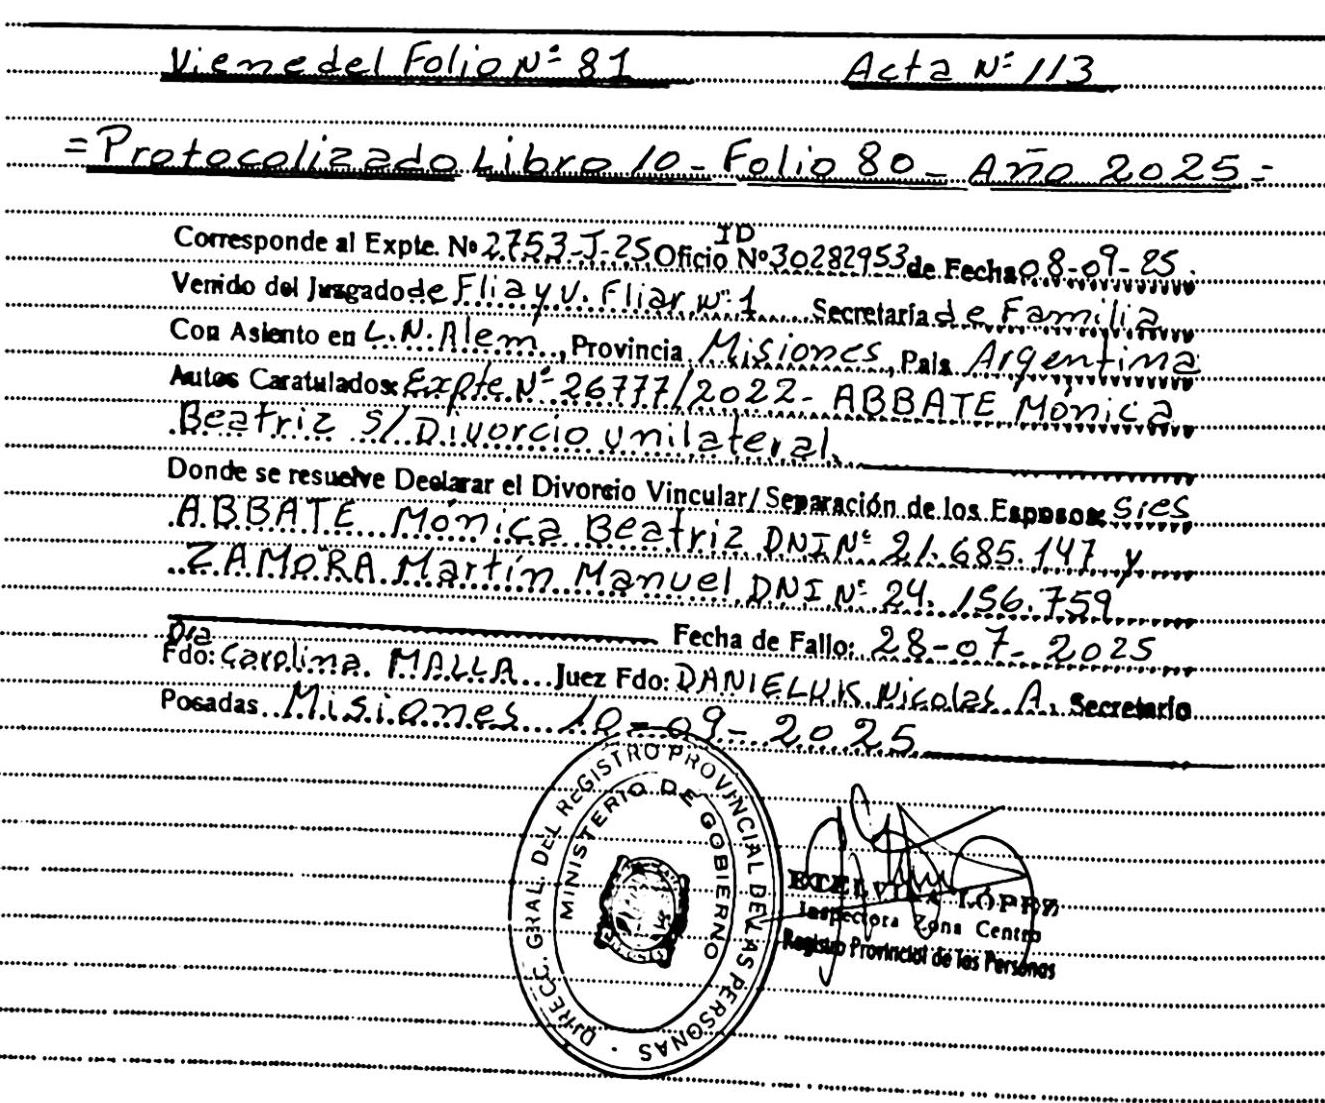 Viene del Folio Nº 81 Acta Nº 113
= Protocolizado Libro 10 - Folio 80 - Año 2025 =
Corresponde al Expte. Nº 2753-J-25 Oficio ID Nº 30282953 de Fecha 08-09-25.
Venido del Juzgado de Flia y V. Fliar Nº 1 Secretaría de Familia
Con Asiento en L.N. Alem, Provincia Misiones, País Argentina
Autos Caratulados: Expte Nº 26777/2022 - ABBATE Mónica
Beatriz S/ Divorcio unilateral.
Donde se resuelve Declarar el Divorcio Vincular/ Separación de los Esposos: sres
ABBATE Mónica Beatriz DNI Nº 21.685.147 y
ZAMORA Martín Manuel DNI Nº 24.156.759
Fecha de Fallo: 28-07-2025
Fdo: Dra Carolina MALLA Juez Fdo: DANIELUK Nicolas A. Secretario
Posadas Misiones 10-09-2025
DIRECC. GRAL. DEL REGISTRO PROVINCIAL DE LAS PERSONAS
MINISTERIO DE GOBIERNO
ETELVINA LÓPEZ
Inspectora Zona Centro
Registro Provincial de las Personas